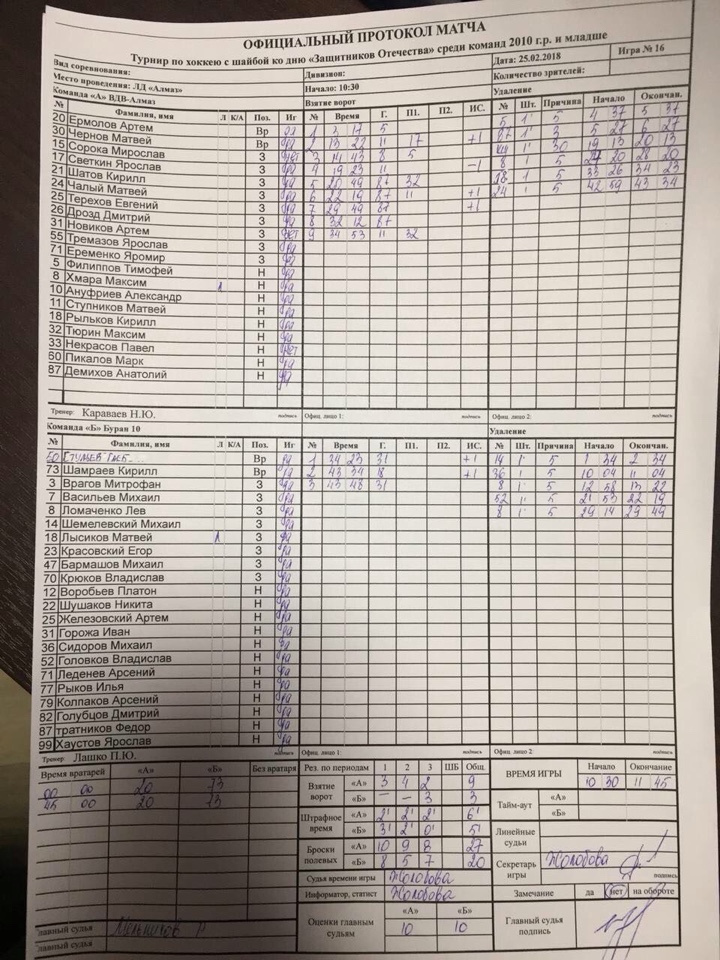 ОФИЦИАЛЬНЫЙ ПРОТОКОЛ МАТЧА
Турнир по хоккею с шайбой ко дню «Защитников Отечества» среди команд 2010 г.р. и младше
Вид соревнования: Дивизион: Дата: 25.02.2018 Игра № 16
Место проведения: ЛД «Алмаз» Начало: 10:30 Количество зрителей:
Команда «А» ВДВ-Алмаз Взятие ворот Удаление
№ Фамилия, имя Л К/А Поз. Иг № Время Г. П1. П2. ИС. № Шт. Причина Начало Окончан.
20 Ермолов Артем Вр да 1 3 17 5 5 1' 5 4 37 5 37
30 Чернов Матвей Вр да 2 13 22 11 17 +1 87 1' 3 5 27 6 27
15 Сорока Мирослав З нет 3 14 43 8 5 1' 30 19 13 20 13
17 Светкин Ярослав З да 4 19 23 11 -1 8 1 5 20 28 20
21 Шатов Кирилл З да 5 20 49 87 32 18 1 5 33 26 34 23
24 Чалый Матвей З да 6 22 19 87 11 +1 24 1 5 42 59 43 34
25 Терехов Евгений З да 7 29 49 87 +1
26 Дрозд Дмитрий З да 8 32 12 87
31 Новиков Артем З нет 9 34 53 11 32
55 Тремазов Ярослав З да
71 Еременко Яромир З да
5 Филиппов Тимофей Н да
8 Хмара Максим Л Н да
10 Ануфриев Александр Н да
11 Ступников Матвей Н да
18 Рыльков Кирилл Н да
32 Тюрин Максим Н да
33 Некрасов Павел Н нет
60 Пикалов Марк Н да
87 Демихов Анатолий Н да
Тренер: Караваев Н.Ю. подпись Офиц. лицо 1: подпись Офиц. лицо 2: подпись
Команда «Б» Буран 10 Удаление
№ Фамилия, имя Л К/А Поз. Иг № Время Г. П1. П2. ИС. № Шт. Причина Начало Окончан.
50 Вр да 1 34 23 31 +1 14 1' 5 1 34 2 34
73 Шамраев Кирилл Вр да 2 43 34 18 +1 36 1 5 10 04 11 04
3 Врагов Митрофан З да 3 43 48 31 8 1' 5 12 58 13 22
7 Васильев Михаил З да 52 1' 5 21 53 22 19
8 Ломаченко Лев З да 8 1' 5 29 14 29 49
14 Шемелевский Михаил З да
18 Лысиков Матвей Л З да
23 Красовский Егор З да
47 Бармашов Михаил З да
70 Крюков Владислав З да
12 Воробьев Платон Н да
22 Шушаков Никита Н да
25 Железовский Артем Н да
31 Горожа Иван Н да
36 Сидоров Михаил Н да
52 Головков Владислав Н да
71 Леденев Арсений Н да
77 Рыков Илья Н да
79 Колпаков Арсений Н да
82 Голубцов Дмитрий Н да
87 тратников Федор Н да
99 Хаустов Ярослав Н да
Тренер Лашко П.Ю. подпись Офиц. лицо 1: подпись Офиц. лицо 2: подпись
Время вратарей «А» «Б» Без вратаря Рез. по периодам 1 2 3 ШБ Общ. ВРЕМЯ ИГРЫ Начало Окончание
00 00 20 73 Взятие ворот «А» 3 4 2 9 10 30 11 45
45 00 20 73 «Б» – – 3 3 Тайм-аут «А»
Штрафное время «А» 2' 2' 2' 6' «Б»
«Б» 3' 2' 0' 5' Линейные судьи
Броски полевых «А» 10 9 8 27
«Б» 8 5 7 20 Секретарь игры Жолобова подпись
Судья времени игры Жолобова
Информатор, статист Жолобова Замечание да нет на обороте
Оценки главным судьям «А» «Б» Главный судья подпись
10 10
Главный судья Мельников Р
Главный судья